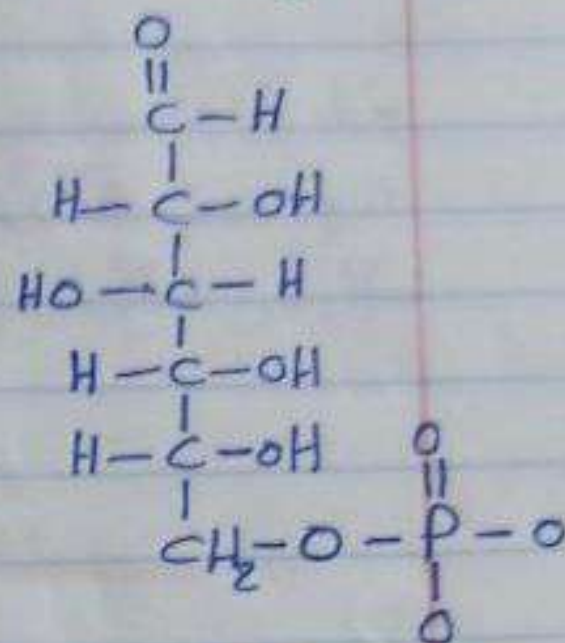 O
||
C-H
|
H-C-OH
|
HO-C-H
|
H-C-OH
|
H-C-OH O
| ||
CH₂-O-P-O
|
O